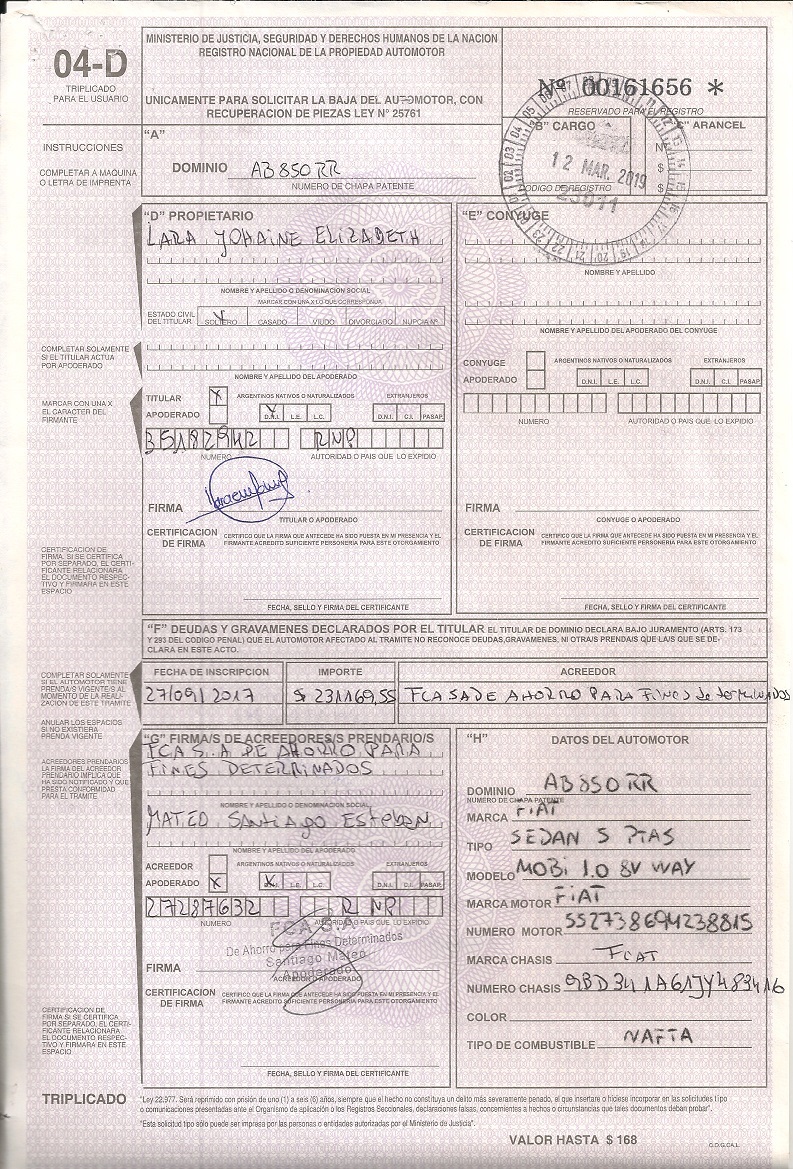 04-D
TRIPLICADO
PARA EL USUARIO
MINISTERIO DE JUSTICIA, SEGURIDAD Y DERECHOS HUMANOS DE LA NACION
REGISTRO NACIONAL DE LA PROPIEDAD AUTOMOTOR
UNICAMENTE PARA SOLICITAR LA BAJA DEL AUTOMOTOR, CON
RECUPERACION DE PIEZAS LEY N° 25761
Nº 00161656 *
RESERVADO PARA EL REGISTRO
"B" CARGO
"C" ARANCEL
Nº
$
$
12 MAR. 2019
CODIGO DE REGISTRO
INSTRUCCIONES
COMPLETAR A MAQUINA
O LETRA DE IMPRENTA
"A"
DOMINIO AB850RR
NUMERO DE CHAPA PATENTE
"D" PROPIETARIO
LARA YOHAINE ELIZABETH
NOMBRE Y APELLIDO O DENOMINACION SOCIAL
MARCAR CON UNA X LO QUE CORRESPONDA
ESTADO CIVIL
DEL TITULAR
SOLTERO X CASADO VIUDO DIVORCIADO NUPCIA Nº
COMPLETAR SOLAMENTE
SI EL TITULAR ACTUA
POR APODERADO
NOMBRE Y APELLIDO DEL APODERADO
MARCAR CON UNA X
EL CARACTER DEL
FIRMANTE
TITULAR X ARGENTINOS NATIVOS O NATURALIZADOS EXTRANJEROS
APODERADO X D.N.I. L.E. L.C. D.N.I. C.I. PASAP.
35182942 RNP
NUMERO AUTORIDAD O PAIS QUE LO EXPIDIO
FIRMA
TITULAR O APODERADO
CERTIFICACION
DE FIRMA
CERTIFICO QUE LA FIRMA QUE ANTECEDE HA SIDO PUESTA EN MI PRESENCIA Y EL
FIRMANTE ACREDITO SUFICIENTE PERSONERIA PARA ESTE OTORGAMIENTO
CERTIFICACION DE
FIRMA. SI SE CERTIFICA
POR SEPARADO, EL CERTI-
FICANTE RELACIONARA
EL DOCUMENTO RESPEC-
TIVO Y FIRMARA EN ESTE
ESPACIO
FECHA, SELLO Y FIRMA DEL CERTIFICANTE
"E" CONYUGE
NOMBRE Y APELLIDO
NOMBRE Y APELLIDO DEL APODERADO DEL CONYUGE
CONYUGE ARGENTINOS NATIVOS O NATURALIZADOS EXTRANJEROS
APODERADO D.N.I. L.E. L.C. D.N.I. C.I. PASAP.
NUMERO AUTORIDAD O PAIS QUE LO EXPIDIO
FIRMA
CONYUGE O APODERADO
CERTIFICACION
DE FIRMA
CERTIFICO QUE LA FIRMA QUE ANTECEDE HA SIDO PUESTA EN MI PRESENCIA Y EL
FIRMANTE ACREDITO SUFICIENTE PERSONERIA PARA ESTE OTORGAMIENTO
FECHA, SELLO Y FIRMA DEL CERTIFICANTE
"F" DEUDAS Y GRAVAMENES DECLARADOS POR EL TITULAR EL TITULAR DE DOMINIO DECLARA BAJO JURAMENTO (ARTS. 173
Y 293 DEL CODIGO PENAL) QUE EL AUTOMOTOR AFECTADO AL TRAMITE NO RECONOCE DEUDAS, GRAVAMENES, NI OTRA/S PRENDA/S QUE LA/S QUE SE DE-
CLARA EN ESTE ACTO.
COMPLETAR SOLAMENTE
SI EL AUTOMOTOR TIENE
PRENDA/S VIGENTE/S AL
MOMENTO DE LA REALI-
ZACION DE ESTE TRAMITE
FECHA DE INSCRIPCION IMPORTE ACREEDOR
27/09/2017 $ 231169,55 FCA SA DE AHORRO PARA FINES determinados
ANULAR LOS ESPACIOS
SI NO EXISTIERA
PRENDA VIGENTE
"G" FIRMA/S DE ACREEDORES/S PRENDARIO/S
FCA S.A DE AHORRO PARA
FINES DETERMINADOS
ACREEDORES PRENDARIOS
LA FIRMA DEL ACREEDOR
PRENDARIO IMPLICA QUE
HA SIDO NOTIFICADO Y QUE
PRESTA CONFORMIDAD
PARA EL TRAMITE
NOMBRE Y APELLIDO O DENOMINACION SOCIAL
MATEO Santiago Esteban
NOMBRE Y APELLIDO DEL APODERADO
ACREEDOR ARGENTINOS NATIVOS O NATURALIZADOS EXTRANJEROS
APODERADO X X D.N.I. L.E. L.C. D.N.I. C.I. PASAP.
27287632 RNP
NUMERO AUTORIDAD O PAIS QUE LO EXPIDIO
FCA S.A.
De Ahorro para Fines Determinados
Santiago Mateo
Apoderado
FIRMA
ACREEDOR O APODERADO
CERTIFICACION
DE FIRMA
CERTIFICO QUE LA FIRMA QUE ANTECEDE HA SIDO PUESTA EN MI PRESENCIA Y EL
FIRMANTE ACREDITO SUFICIENTE PERSONERIA PARA ESTE OTORGAMIENTO
CERTIFICACION DE
FIRMA SI SE CERTIFICA
POR SEPARADO, EL CERTI-
FICANTE RELACIONARA
EL DOCUMENTO RESPEC-
TIVO Y FIRMARA EN ESTE
ESPACIO
FECHA, SELLO Y FIRMA DEL CERTIFICANTE
"H" DATOS DEL AUTOMOTOR
DOMINIO AB850RR
NUMERO DE CHAPA PATENTE
MARCA FIAT
TIPO SEDAN 5 PTAS
MODELO MOBI 1.0 8V WAY
MARCA MOTOR FIAT
NUMERO MOTOR 552738694238815
MARCA CHASIS FIAT
NUMERO CHASIS 9BD341A61JY483416
COLOR
TIPO DE COMBUSTIBLE NAFTA
TRIPLICADO
"Ley 22.977. Será reprimido con prisión de uno (1) a seis (6) años, siempre que el hecho no constituya un delito más severamente penado, el que insertare o hiciese incorporar en las solicitudes tipo
o comunicaciones presentadas ante el Organismo de aplicación o los Registros Seccionales, declaraciones falsas, concernientes a hechos o circunstancias que tales documentos deban probar".
"Esta solicitud tipo sólo puede ser impresa por las personas o entidades autorizadas por el Ministerio de Justicia".
VALOR HASTA $ 168